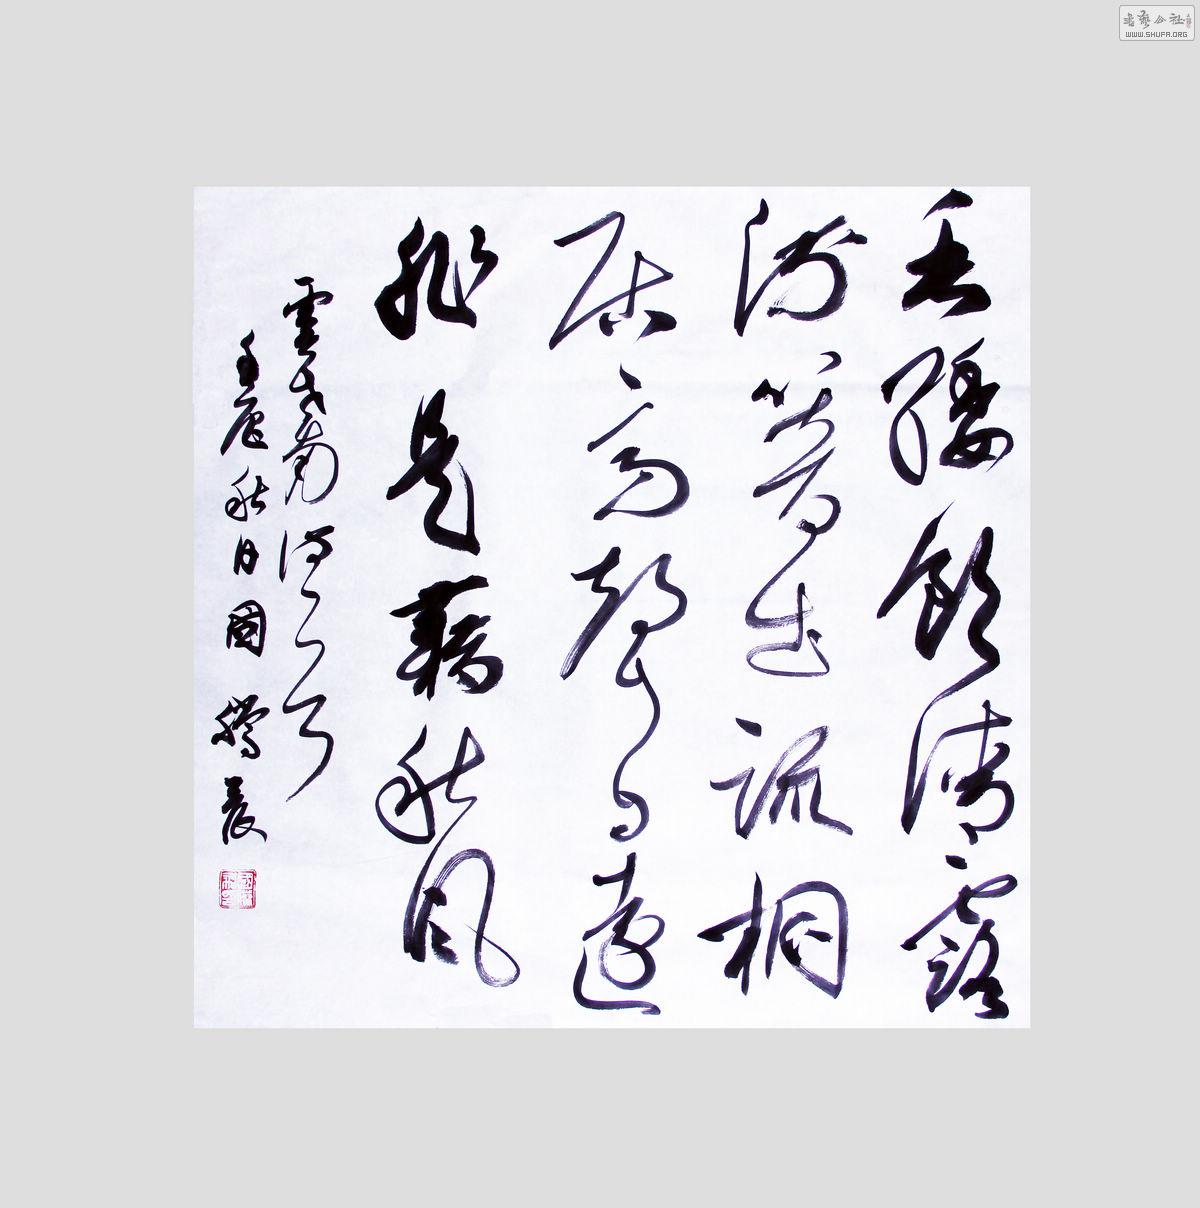 书艺公社
WWW.SHUFA.ORG
垂緌飲清露
流響出疏桐
居高聲自遠
非是藉秋風
虞世南詩一首
壬辰秋日國騰